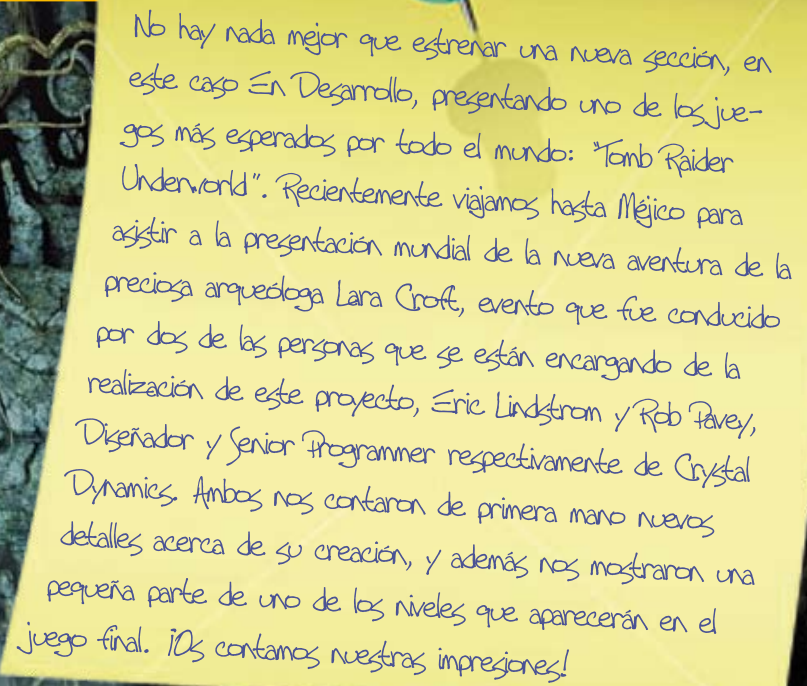 No hay nada mejor que estrenar una nueva sección, en
este caso En Desarrollo, presentando uno de los jue-
gos más esperados por todo el mundo: "Tomb Raider
Underworld". Recientemente viajamos hasta Méjico para
asistir a la presentación mundial de la nueva aventura de la
preciosa arqueóloga Lara Croft, evento que fue conducido
por dos de las personas que se están encargando de la
realización de este proyecto, Eric Lindstrom y Rob Pavey,
Diseñador y Senior Programmer respectivamente de Crystal
Dynamics. Ambos nos contaron de primera mano nuevos
detalles acerca de su creación, y además nos mostraron una
pequeña parte de uno de los niveles que aparecerán en el
juego final. ¡Os contamos nuestras impresiones!